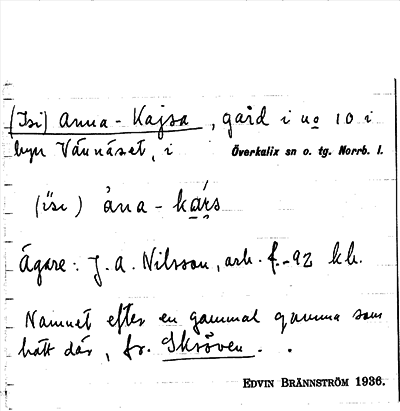 (Isi) Anna-Kajsa, gård i no 10 i
byn Vännäset, i Överkalix sn o. tg. Norrb. l.
(ïsi) àna-kárs
Ägare: J. A. Nilsson, arb. f. -92 kb.
Namnet efter en gammal gumma som
hatt där, fr. Skröven.
EDVIN BRÄNNSTRÖM 1936.